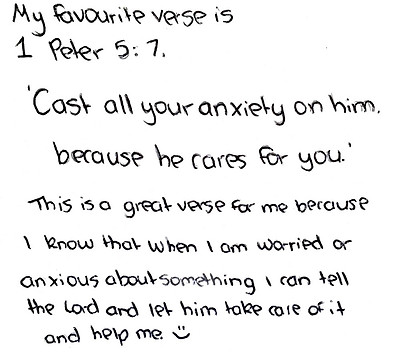 My favourite verse is
1 Peter 5:7.
'Cast all your anxiety on him,
because he cares for you.'
This is a great verse for me because
I know that when I am worried or
anxious about something I can tell
the Lord and let him take care of it
and help me.